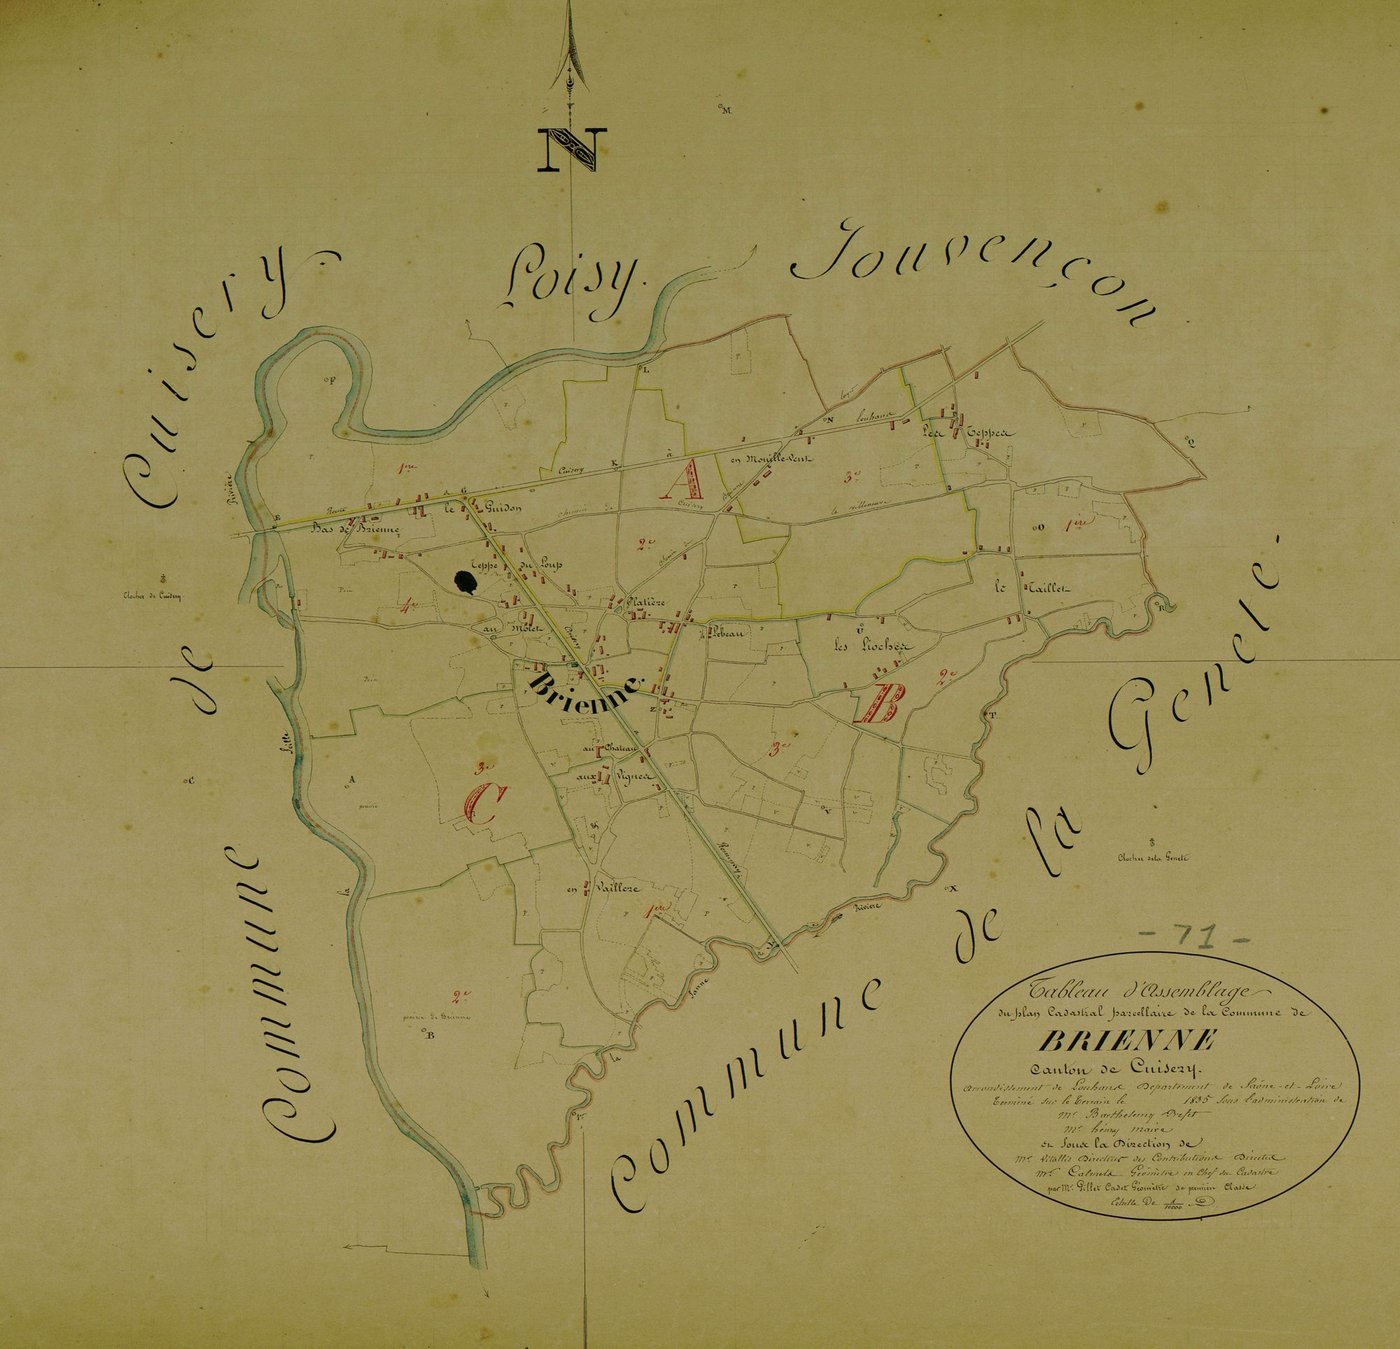 N
M
Commune de Cuisery.
Loisy.
Jouvençon
Commune de la Genete.
F
L
N
O
Q
R
T
X
K
E
G
A
B
C
V
Z
1re
A
2e
3e
1ère
4e
B
2e
3e
C
3e
1ère
2e
Rivière
Route
Cuisery
à
Louhans
Les Teppes
en Mouille-Vent
le Guidon
Bas de Brienne
Chemin de Cuisery
la villeneuve
Teppe du Loup
au Molet
Platière
Lebeau
le Taillet
les Piochex
Brienne.
Clocher de Cuisery
au Chateau
aux Vignes
Seille
la
prairie
Romenay
en Vaillere
prairie de Brienne
Rivière
la
Sanne
Clocher de la Genete
- 71 -
Tableau d'Assemblage
du plan Cadastral parcellaire de la Commune de
BRIENNE
Canton de Cuisery.
Arrondissement de Louhans Département de Saône-et-Loire
Terminé sur le Terrain le 1835 Sous l'administration de
Mr. Barthelemy Préfet
Mr. hémy maire
et Sous la Direction de
Mr. Vitallis Directeur des Contributions Directes
Mr. Géomètre en Chef du Cadastre
par Mr. Gillet Cadet Géomètre de première Classe
Echelle De 1/10000